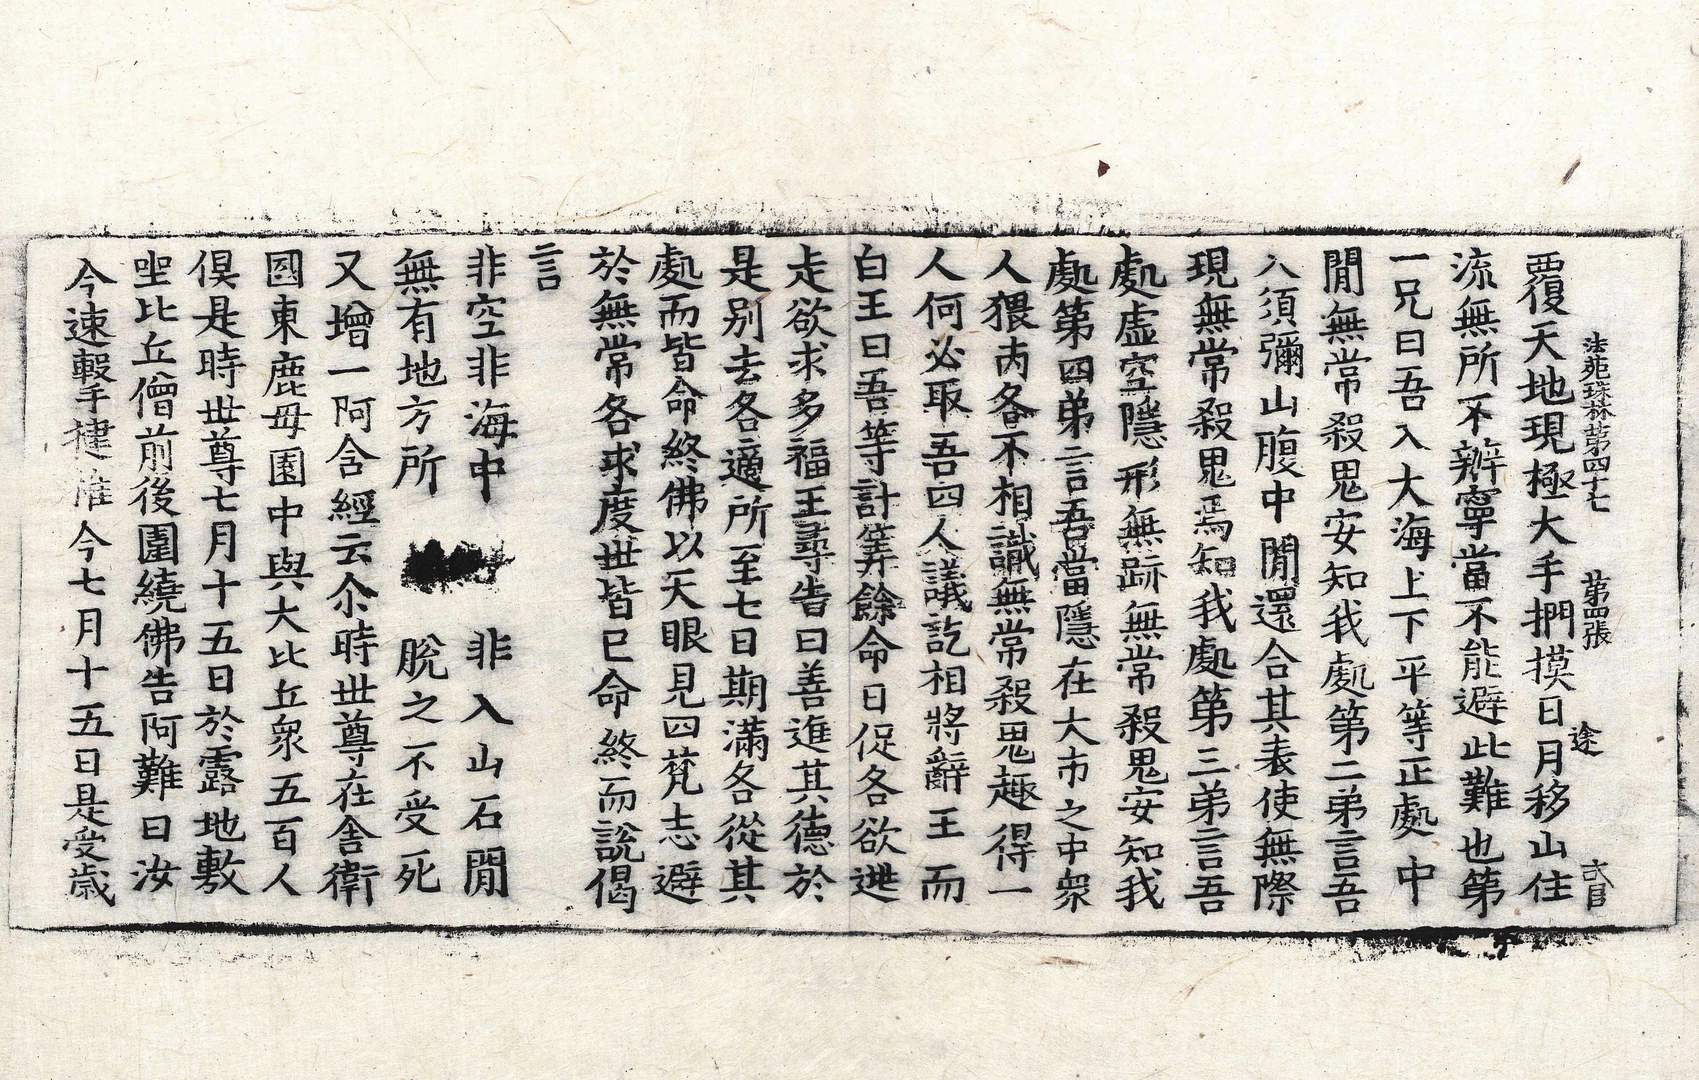 法苑珠林第四十七　第四張　途　弍目
覆天地現極大手捫摸日月移山住
流無所不辦寧當不能避此難也第
一兄曰吾入大海上下平等正處中
閒無常殺鬼安知我處第二弟言吾
入須彌山腹中閒還合其表使無際
現無常殺鬼焉知我處第三弟言吾
處虛空隱形無跡無常殺鬼安知我
處第四弟言吾當隱在大市之中衆
人猥丙各不相識無常殺鬼趣得一
人何必取吾四人議訖相將辭王而
白王曰吾等計筭餘命日促各欲逃
走欲求多福王尋告曰善進其德於
是別去各適所至七日期滿各從其
處而皆命終佛以天眼見四梵志避
於無常各求度世皆已命終而說偈
言
非空非海中　非入山石閒
無有地方所　脫之不受死
又增一阿含經云尒時世尊在舍衛
國東鹿毋園中與大比丘衆五百人
俱是時世尊七月十五日於露地敷
坐比丘僧前後圍繞佛告阿難曰汝
今速擊揵椎今七月十五日是受歲